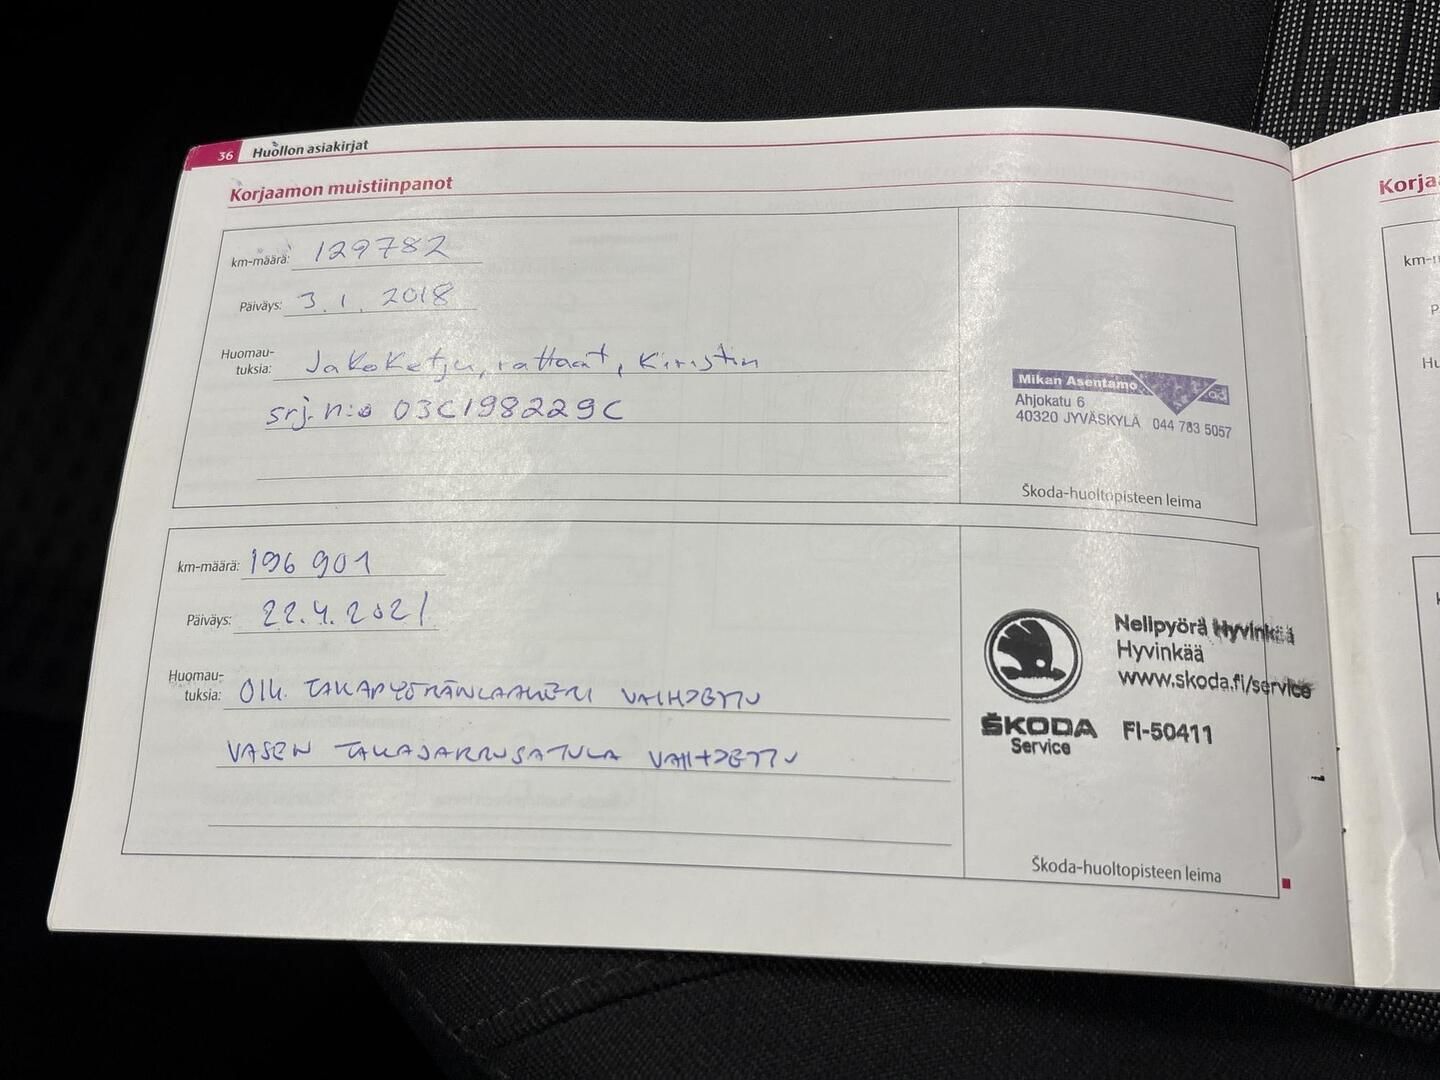 36 Huollon asiakirjat
Korjaamon muistiinpanot
km-määrä: 129782
Päiväys: 3.1.2018
Huomau-
tuksia: Jakoketju, rattaat, Kiristin
srj. n:o 03C198229C
Mikan Asentamo ad
Ahjokatu 6
40320 JYVÄSKYLÄ 044 783 5057
Škoda-huoltopisteen leima
km-määrä: 196 901
Päiväys: 22.4.2021
Huomau-
tuksia: OIK. TAKAPYÖRÄNLAAKERI VAIHDETTU
VASEN TAKAJARRUSATULA VAIHDETTU
Nelipyörä Hyvinkää
Hyvinkää
www.skoda.fi/service
ŠKODA FI-50411
Service
Škoda-huoltopisteen leima
Korja
km-
P
Hu